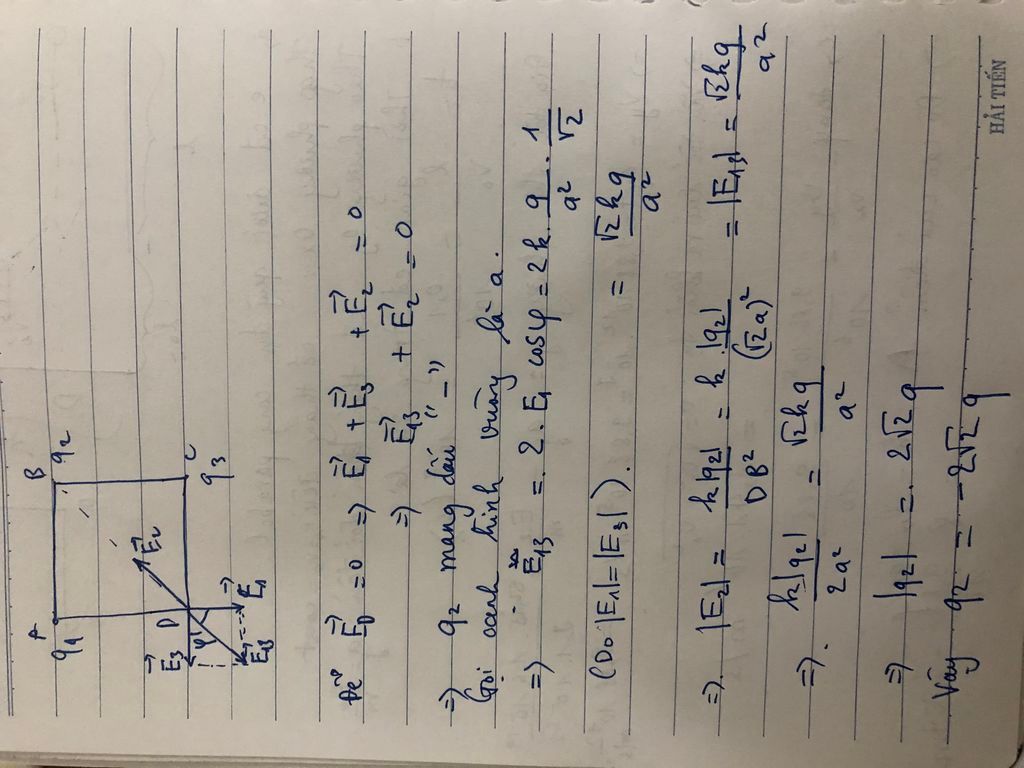 A B
q₁ q₂
E₂⃗
E₃⃗ D C
φ q₃
E₁₃⃗ E₁⃗
Để E_D⃗ = 0 => E₁⃗ + E₃⃗ + E₂⃗ = 0
=> E₁₃⃗ + E₂⃗ = 0
=> q₂ mang dấu "-"
Gọi cạnh hình vuông là a.
=> E₁₃ = 2. E₁ cosφ = 2k. q/a² . 1/√2
(Do |E₁| = |E₃|). = √2kq/a²
=>. |E₂| = k|q₂|/DB² = k.|q₂|/(√2a)² = |E₁₃| = √2kq/a²
=>. k|q₂|/2a² = √2kq/a²
=> |q₂| = 2√2 q
Vậy q₂ = -2√2 q
HẢI TIẾN